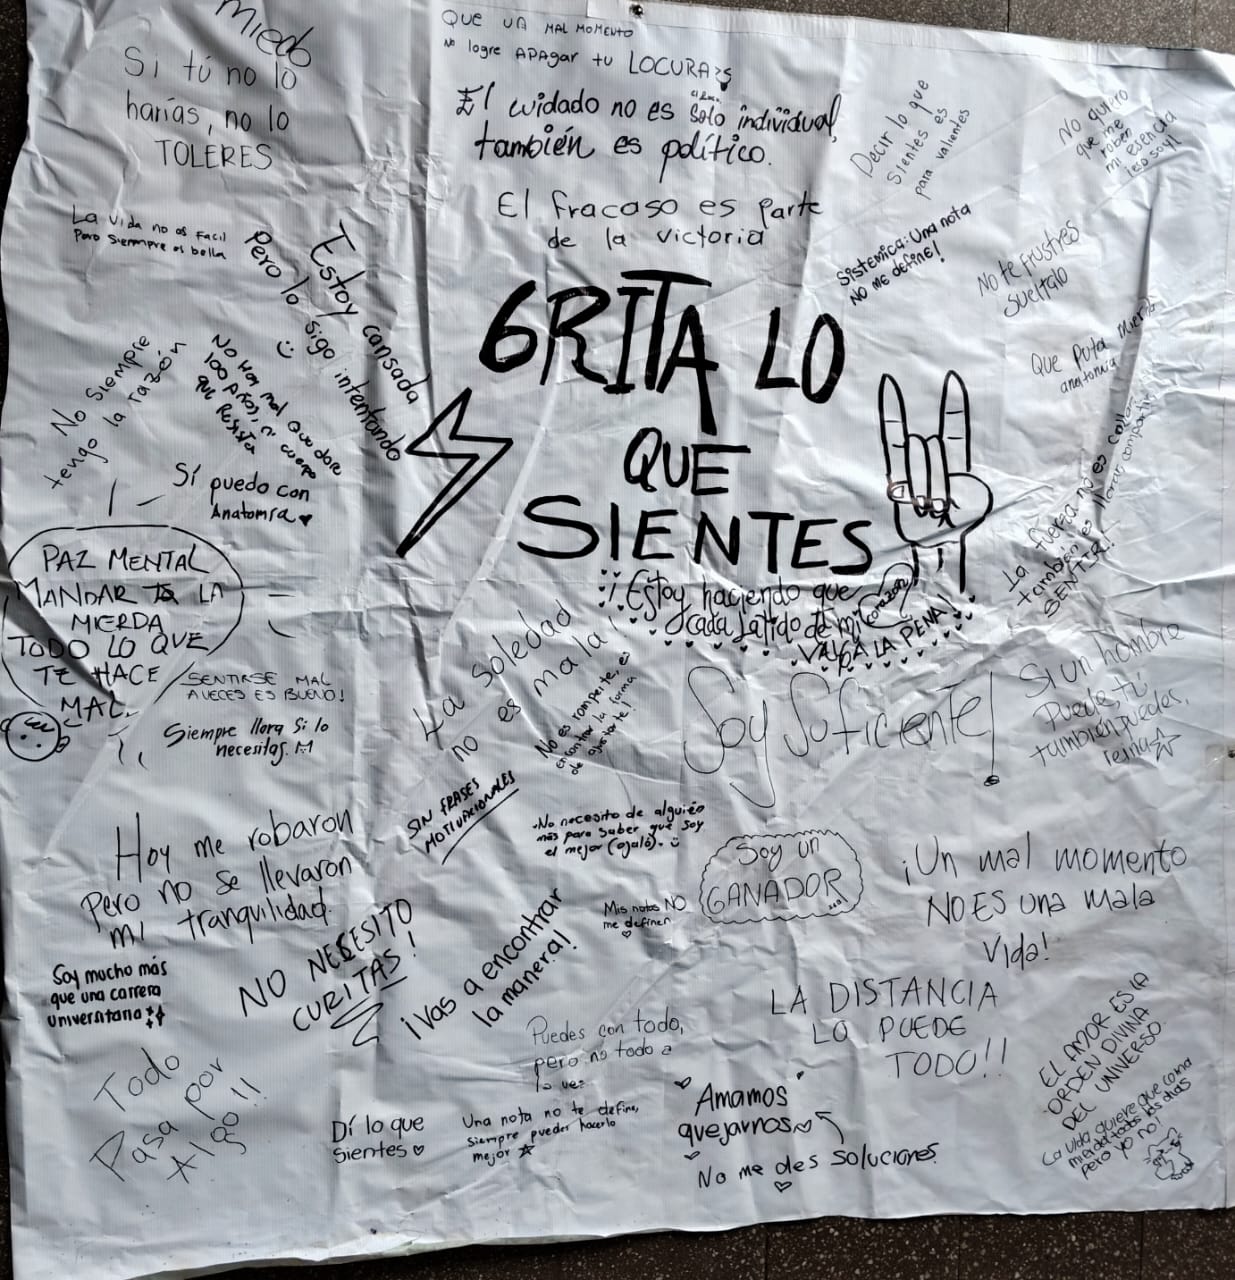 Miedo
Si tú no lo
harías, no lo
TOLERES
QUE UN MAL MOMENTO
No logre APAgar tu LOCURA
El cuidado no es solo individual,
también es político.
El fracaso es parte
de la victoria
Decir lo que
sientes es
para valientes
No quiero
que me
roben
mi esencia
¡eso soy!
La vida no es Facil
Pero siempre es bella
Estoy cansada
Pero lo sigo intentando
Sistemica: Una nota
NO me define!
No te frustres
sueltalo
GRITA LO
QUE
SIENTES
No siempre
tengo la razón
No hay mal que dure
100 Años, ni cuerpo
que Resista
Que Puta mierda
anatomia
Sí puedo con
Anatomía
La fuerza no es callar
también es llorar, compartir
SENTIR!
PAZ MENTAL
MANDAR A LA
MIERDA
TODO LO QUE
TE HACE
MAL
¡¡Estoy haciendo que
cada latido de mi corazon
VALGA LA PENA!
La soledad
no es mala!
SENTIRSE MAL
AVECES ES BUENO!
Siempre llora si lo
necesitas.
No es romperte, es
encontrar la forma
de
Soy Suficiente!
Si un hombre
Puede, tú
también puedes,
reina
SIN FRASES
MOTIVACIONALES
No necesito de alguien
más para saber que soy
el mejor (ojalá).
Hoy me robaron
Pero no se llevaron
mi tranquilidad.
Soy un
GANADOR
¡Un mal momento
NO ES una mala
Vida!
Mis notas NO
me definen
NO NECESITO
CURITAS!
¡Vas a encontrar
la manera!
Soy mucho más
que una carrera
universitaria
LA DISTANCIA
LO PUEDE
TODO!!
Puedes con todo,
pero no todo a
la vez
EL AMOR ES LA
ORDEN DIVINA
DEL UNIVERSO
Todo
Pasa por
Algo!!
Dí lo que
sientes
Una nota no te define,
siempre puedes hacerlo
mejor
Amamos
quejarnos
No me des soluciones.
La vida quiere que coma
mierda todos los dias
pero yo no!